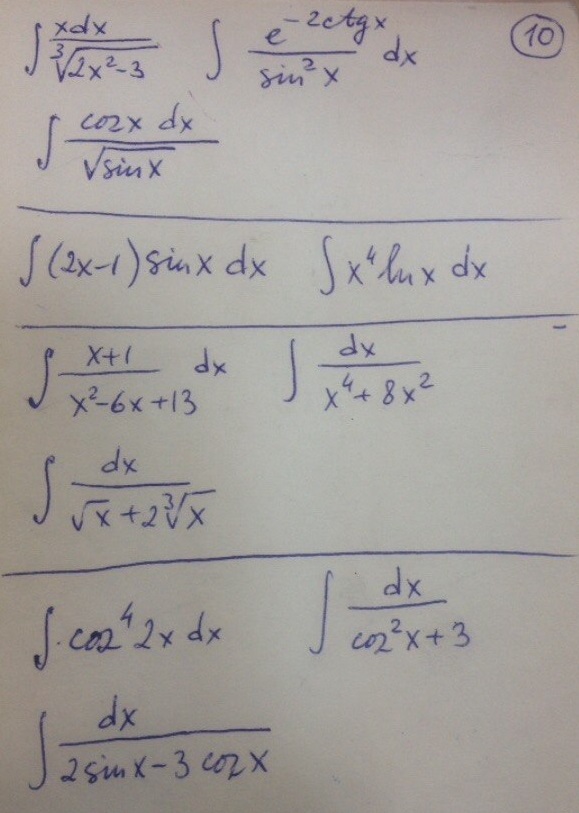 ∫ xdx/∛(2x²-3) ∫ e^(-2ctgx)/sin²x dx 10
∫ cosx dx/√sinx
∫(2x-1) sinx dx ∫x⁴lnx dx
∫ x+1/(x²-6x+13) dx ∫ dx/(x⁴+8x²)
∫ dx/(√x+2∛x)
∫ cos⁴2x dx ∫ dx/(cos²x+3)
∫ dx/(2sinx-3cosx)